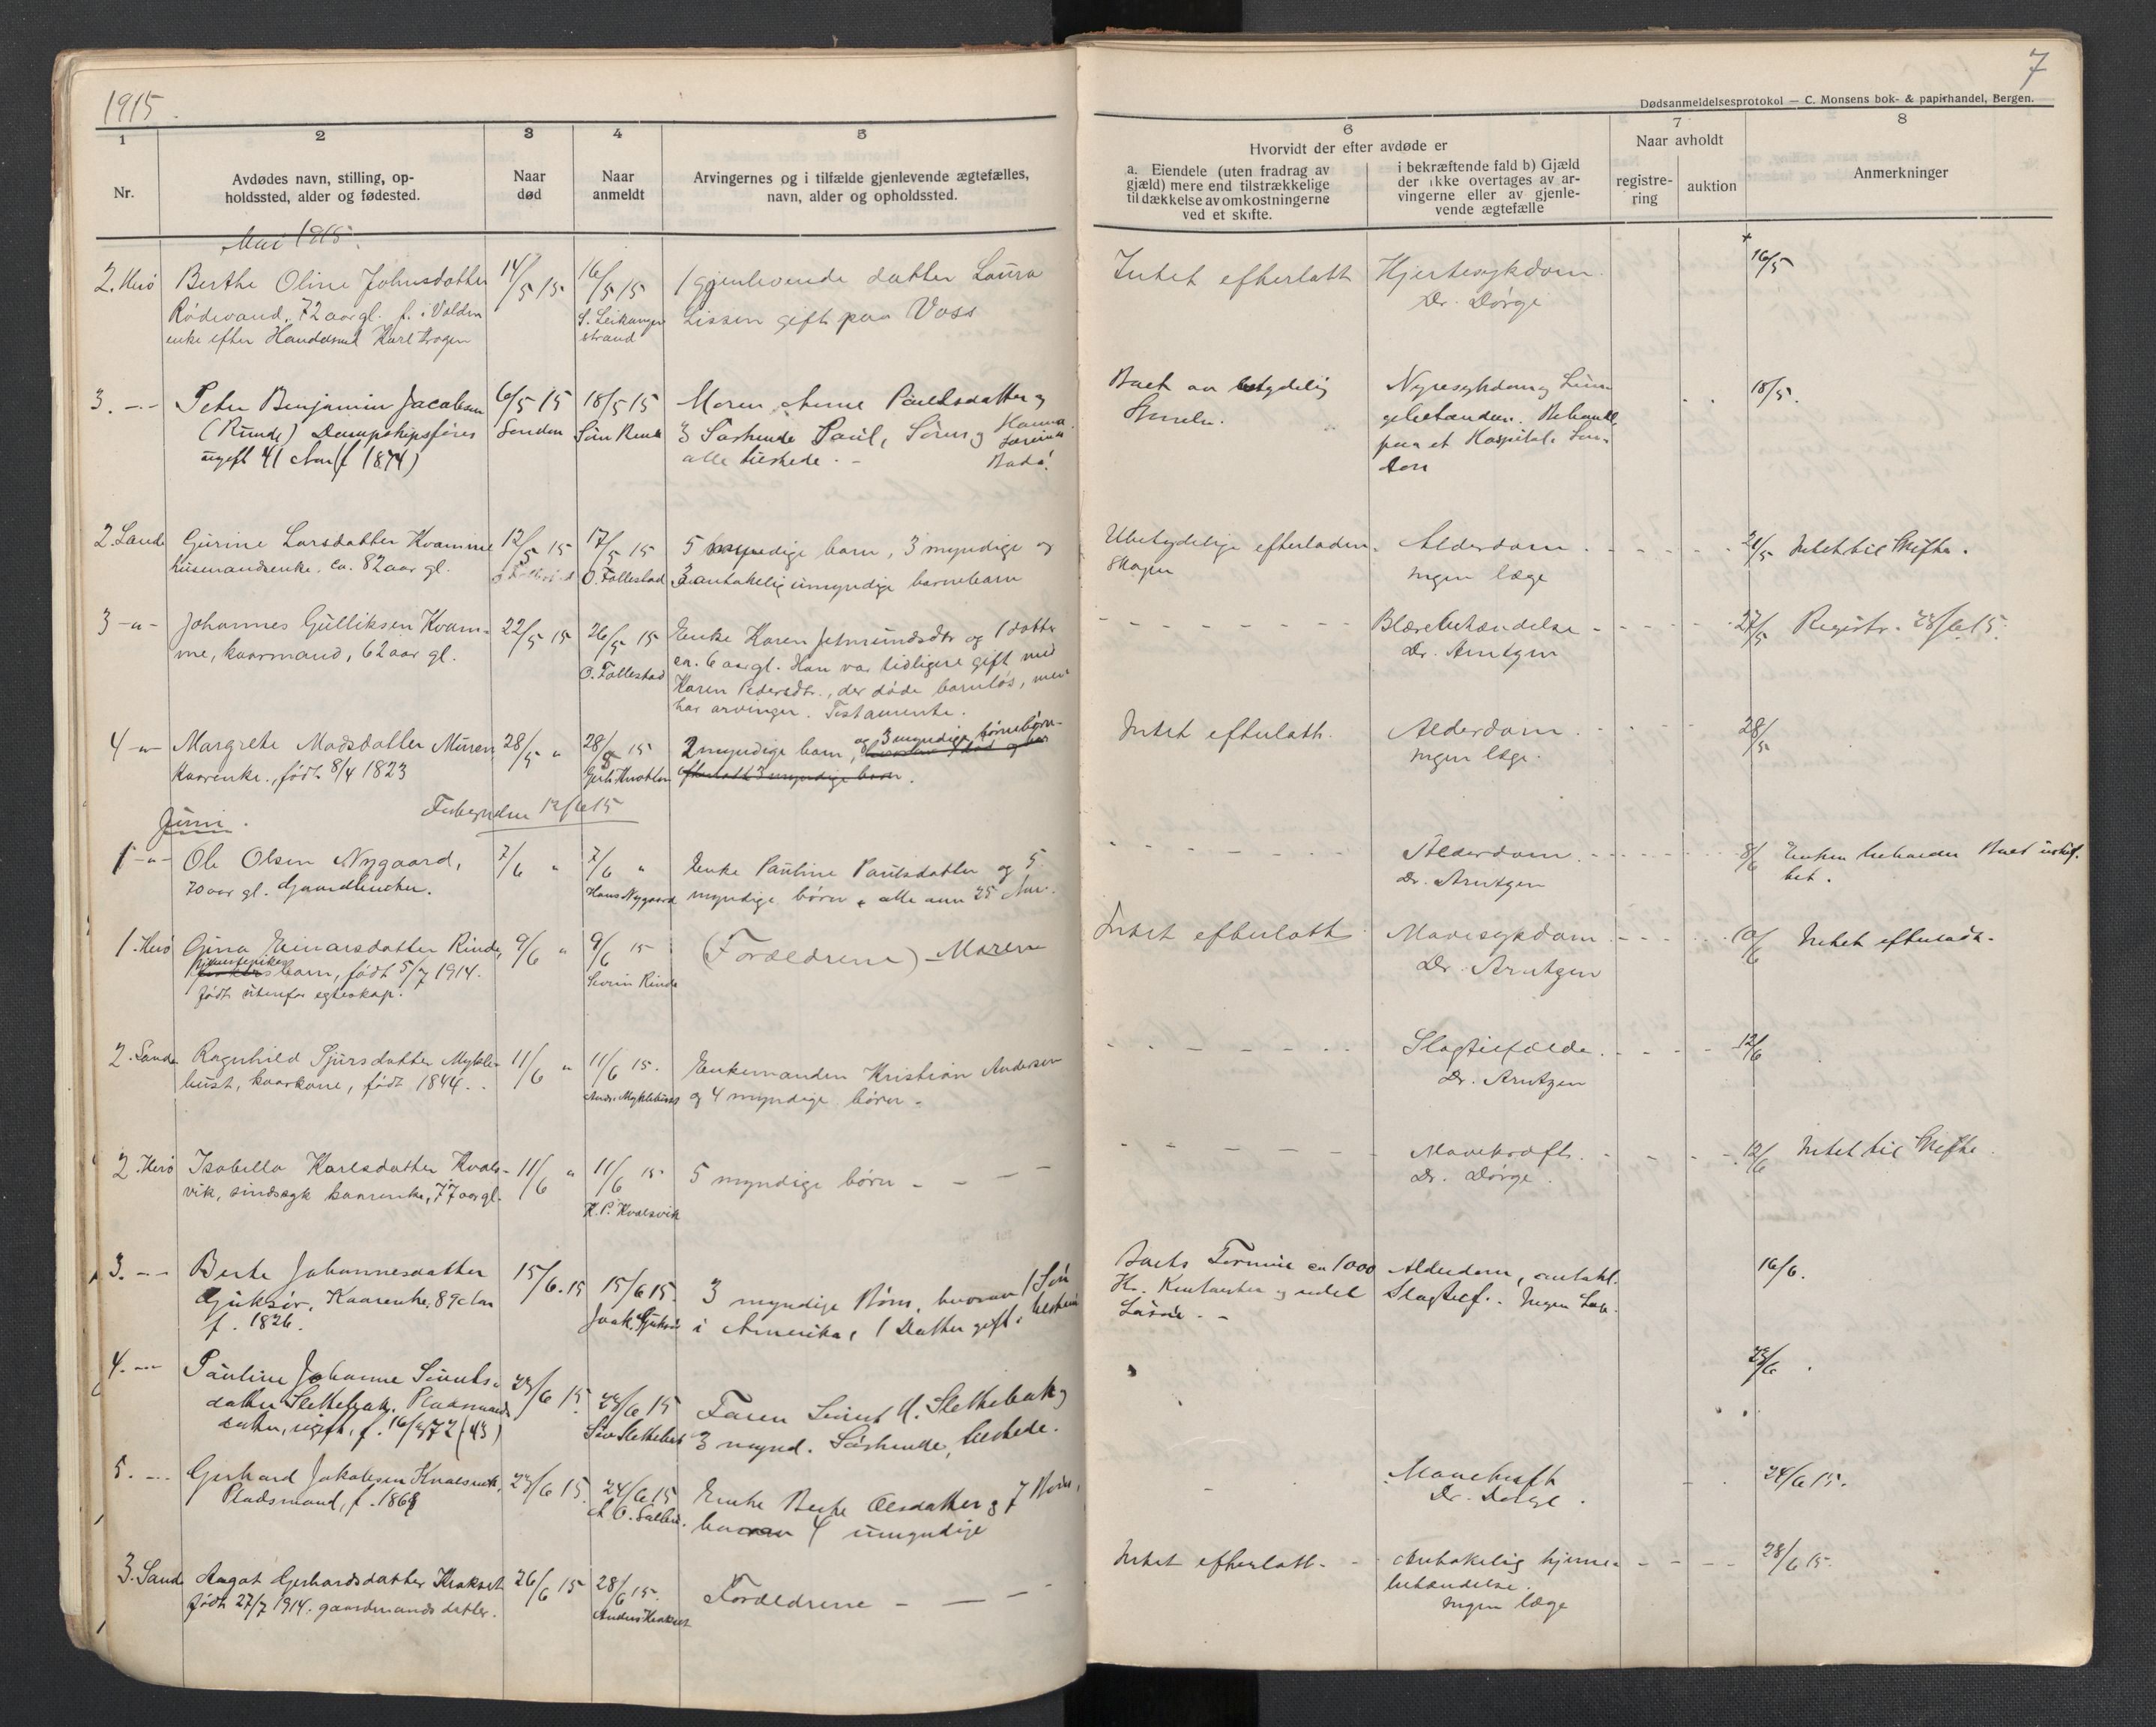 1915.
7
Dødsanmeldelsesprotokol — C. Monsens bok- & papirhandel, Bergen.
1
2
3
4
5
6
7
8
Nr.
Avdødes navn, stilling, op-
holdssted, alder og fødested.
Naar
død
Naar
anmeldt
Arvingernes og i tilfælde gjenlevende ægtefælles,
navn, alder og opholdssted.
Hvorvidt der efter avdøde er
a. Eiendele (uten fradrag av
gjæld) mere end tilstrækkelige
til dækkelse av omkostningerne
ved et skifte.
i bekræftende fald b) Gjæld
der ikke overtages av ar-
vingerne eller av gjenle-
vende ægtefælle
Naar avholdt
registre-
ring
auktion
Anmerkninger
Mai 1915.
2. Herö
Berthe Oline Johnsdatter
Rödevand, 72 aar gl. f. i Volden
enke efter Handelsmd Karl Krogen
14/5 15
16/5 15
S. Leikanger
strand
1 gjenlevende datter Laura
Lissen gift paa Voss
Intet efterlatt
Hjertesykdom.
Dr. Dörge
16/5
3. -"-
Peter Benjamin Jacobsen
(Runde) Dampskipsförer
ugift 41 Aar (f 1874)
6/5 15
London
18/5 15
Sörn Runde
Moren Anne Paulsdatter og
3 Söskende Paul, Sören og Hanna
alle tilstede. -
Boet av ubetydelig
Nyresykdom og Lun-
gebetændelse. Behandl.
paa et Hospital i Lon-
don
18/5.
2. Sande
Gurine Larsdatter Kvamme
husmandsenke. ca. 82 aar gl.
12/5 15
17/5 15
O. Follestad
5 myndige barn, 3 myndige og
3 antakelig umyndige barnebarn
Ubetydelige efterladen-
skaper
Alderdom.
Ingen læge
21/5 Intet til Skifte.
3 -"-
Johannes Gulliksen Kvam-
me, kaarmand, 62 aar gl.
22/5 15
26/5 15
O. Follestad
Enke Karen Jetmundsdtr og 1 datter
ca. 6 aar gl. Han var tidligere gift med
Karen Pedersdtr., der døde barnløs, men
har arvinger. Testamente.
Blærebetændelse
Dr. Arntzen
27/5 Registr. 28/6 15.
4 -"-
Margrete Madsdatter Muren
Kaarenke., født 8/4 1823
28/5 "
28/5 15
2 myndige barn, og 3 myndige børnebørn.
efterlatt 3 myndige barn.
Intet efterlatt.
Alderdom.
Ingen læge.
28/5
Juni.
12/6 15
1 -"-
Ole Olsen Nygaard,
70 aar gl. Gaardbruker.
7/6 "
7/6 "
Hans Nygaard
Enke Pauline Paulsdatter og 5
myndige børn, alle over 25 Aar.
Alderdom.
Dr. Arntzen
8/6 Enken beholder Boet uskif-
tet.
1. Herö
Gina Einarsdatter Rinde,
barn, født 5/7 1914.
født utenfor egteskap.
9/6 "
9/6 15
Severin Rinde
(Forældrene) - Moren
Intet efterlatt
Mavesykdom
Dr. Arntzen
10/6 Intet efterladt.
2. Sande
Ragnhild Sjursdatter Mykle-
bust, kaarkone, født 1844.
11/6 "
11/6 15.
Andr. Myklebust
Enkemanden Kristian Andersen
og 4 myndige børn -
Slagtilfælde.
Dr. Arntzen
12/6
2. Herö
Isabella Karlsdatter Kvals-
vik, sindssyk kaarenke, 77 aar gl.
11/6 "
11/6 15
K. P. Kvalsvik
5 myndige børn - - -
Mavekræft.
Dr. Dörge.
12/6 Intet til Skifte.
3. -"-
Berte Johannesdatter
Gjuksör, Kaarenke, 89 Aar
f. 1826.
15/6. 15
15/6 15.
Joak. Gjuksör
3 myndige Børn, hvorav 1 Søn
i Amerika, 1 Datter gift,
Boets Formue ca 1000
Kr. Kontanter og
Løsøre. -
Alderdom, antakl.
Slagtilf. Ingen Læge.
16/6.
4. -"-
Pauline Johanne Sivertsdatter
Slettebak. Pladsmands
datter, ugift, f. 16/9 72 (43)
23/6 15.
23/6 15
Siv. Slettebak
Faren Sivert A. Slettebak og
3 mynd. Söskende, tilstede.
23/6.
5. -"-
Gerhard Jakobsen Kvalsvik,
Pladsmand, f. 1869
23/6 15.
24/6 15
Enke Berte Olsdatter og 7 Börn,
hvorav 4 umyndige
Mavekræft
Dr. Dørge.
24/6 15.
3. Sande
Aagot Gerhardsdatter Krakset
født 27/7 1914. gaardmands datter.
26/6 15
28/6 15.
Anders Krakset
Forældrene - - -
Intet efterlatt. -
Antakelig hjerne-
betændelse.
Ingen læge
28/6 15.